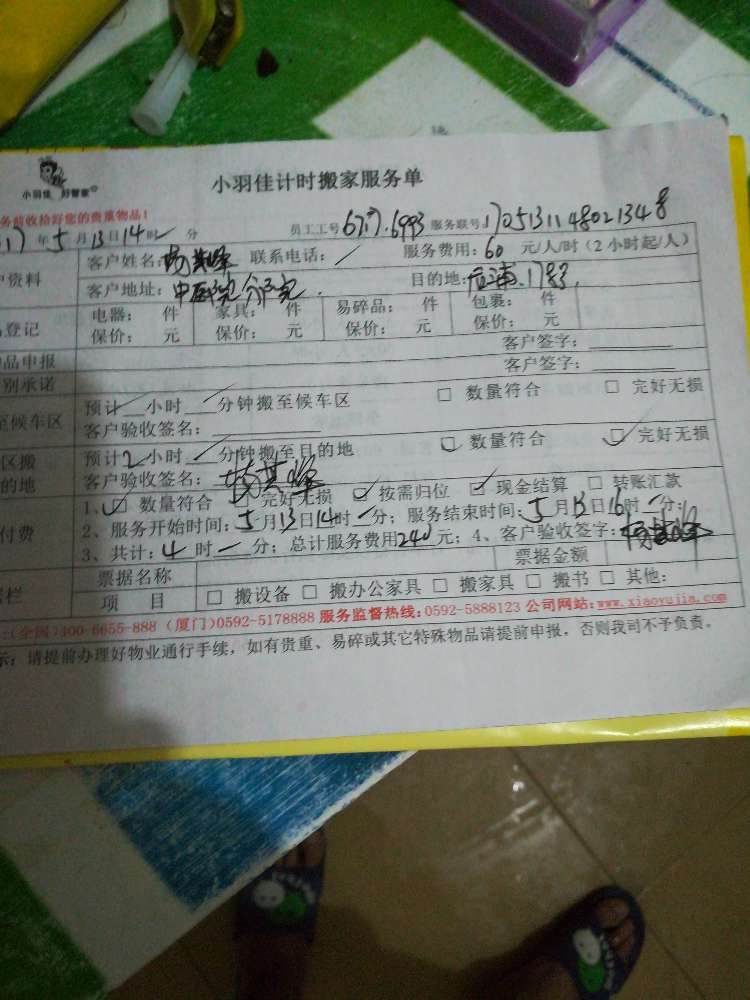 小羽佳 好管家®
小羽佳计时搬家服务单
务前收拾好您的贵重物品!
17年5月13日14时 分 员工工号6717.6993 服务联号:1705131148021348
户资料 客户姓名: 联系电话:/ 服务费用:60 元/人/时(2小时起/人)
客户地址:中医院 目的地:1783
登记 电器: 件 家具: 件 易碎品: 件 包裹: 件
保价: 元 保价: 元 保价: 元 保价: 元
品申报 客户签字:
别承诺 客户签字:
至候车区 预计 小时 分钟搬至候车区 □ 数量符合 □ 完好无损
客户验收签名:
区搬 预计2小时 分钟搬至目的地 ☑ 数量符合 ☑ 完好无损
的地 客户验收签名:
付费 1、☑ 数量符合 完好无损 ☑ 按需归位 ☑ 现金结算 □ 转账汇款
2、服务开始时间:5月13日14时 分;服务结束时间:5月13日16时 分;
3、共计:4时 分;总计服务费用240元;4、客户验收签字:
栏 票据名称 票据金额
项 目 □ 搬设备 □ 搬办公家具 □ 搬家具 □ 搬书 □ 其他:
(全国)400-6655-888 (厦门)0592-5178888 服务监督热线:0592-5888123 公司网站:www.xiaoyujia.com
示:请提前办理好物业通行手续,如有贵重、易碎或其它特殊物品请提前申报,否则我司不予负责。